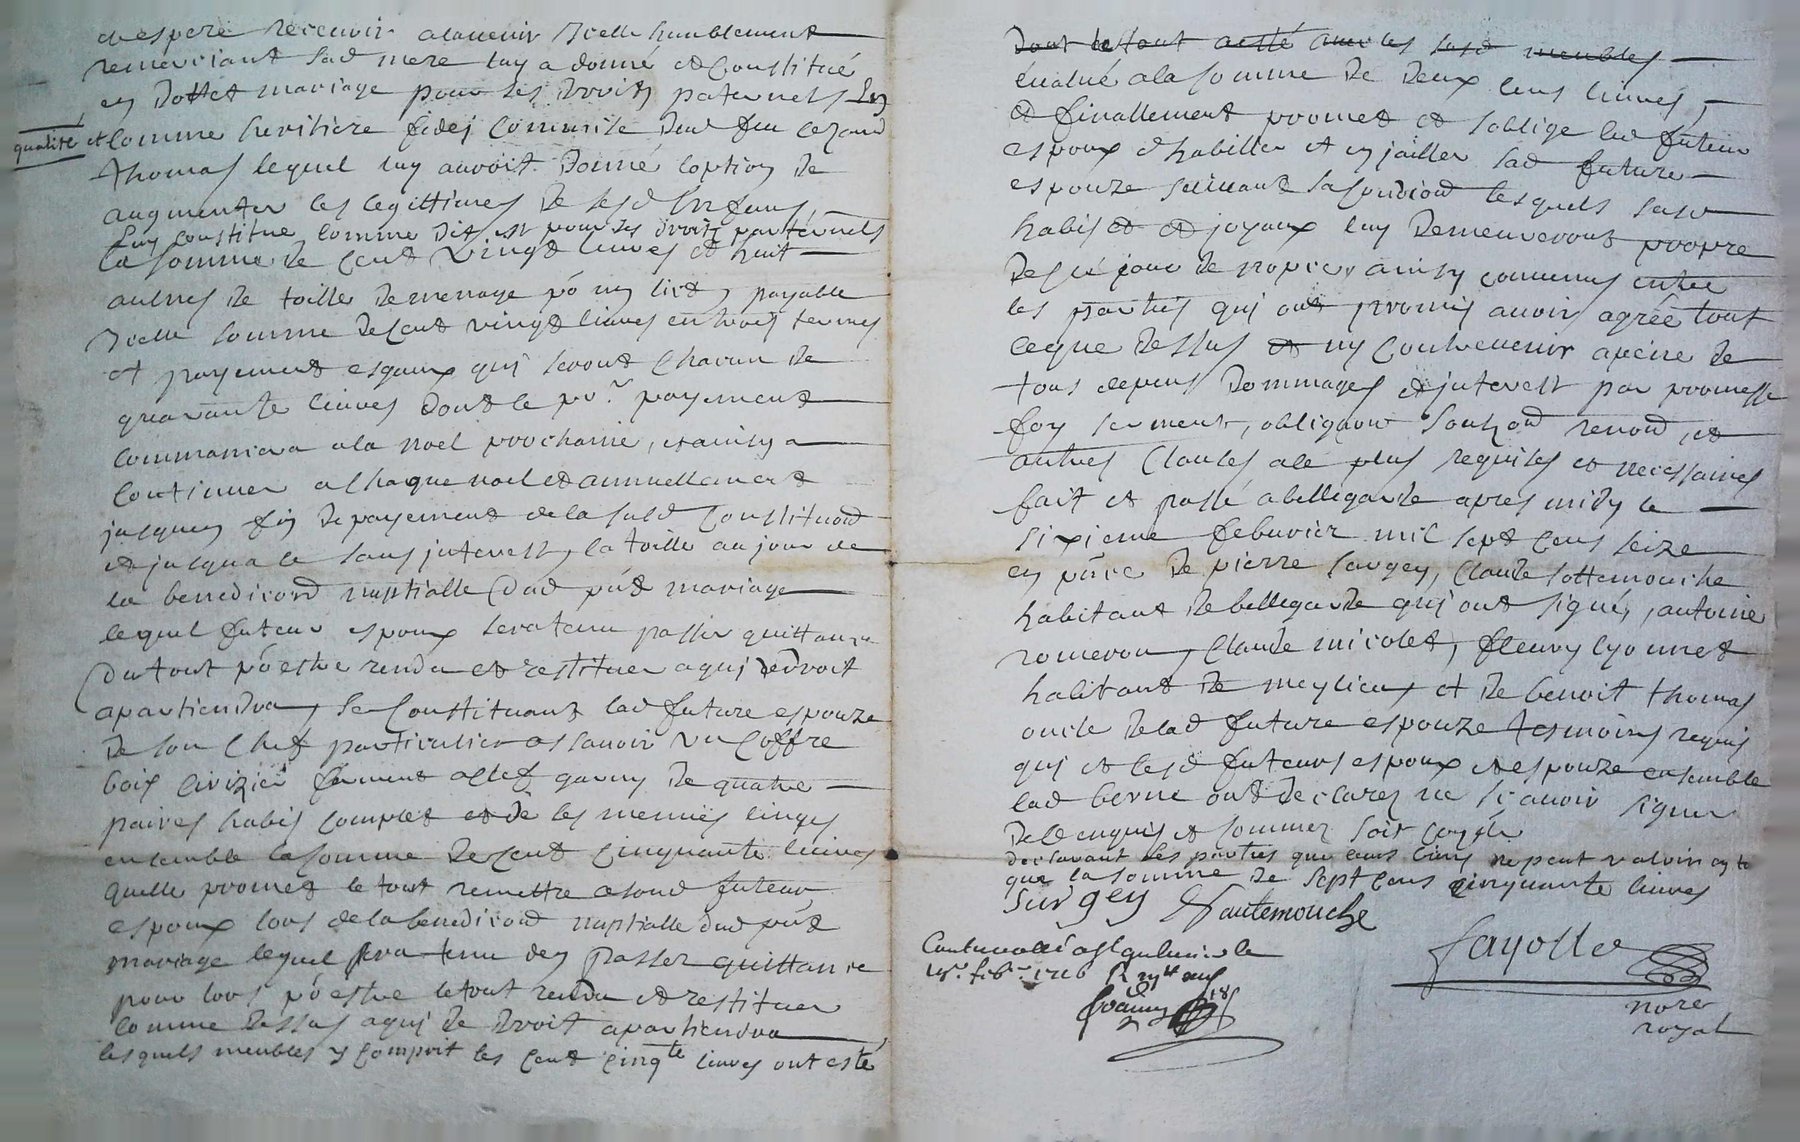 et espere recevoir alavenir Icelle humblement
remerciant sad mere luy a donné et Constitué
en Dot et mariage pour ses droits paternels En
qualité et Comme heritiere fidej Commise dud feu
Thomas lequel luy auroit Donné loption de
augmenter les legittimes de sesd Enfans
luy constitue comme dit est pour ses droits paternels
la somme de Cent vingt livres et huit
aulnes de toille de menage po un lict, payable
Icelle somme de Cent vingt livres en trois termes
et payements esgaux qui seront Chacun de
quarante livres dont le pr. payement
Commancera a la noel prochaine, et ainsy a
Continuer a Chaque noel et annuellement
jusques fin de payement de la susd Constituon
et jusqua ce sans interest, la toille au jour de
la benediction nuptialle dud pnt mariage
lequel futeur espoux sera tenu passer quittance
du tout po estre rendu et restituer a qui de droit
apartiendra, Se Constituant lad future espouze
de son Chef particulier assavoir Un Coffre
bois ferment a clef garny de quatre
paires habis complet et de ses menues linges
ensemble la somme de Cent Cinquante livres
quelle promet le tout remettre a sond futeur
espoux lors de la benediction nuptialle dud pnt
mariage lequel sera tenu den passer quittance
pour lors po estre le tout rendu et restituer
Comme dessus a qui de Droit apartiendra
lesquels meubles y Comprit les Cent Cinqte livres ont esté
dont le tout a esté avec les susd meubles
évalué a la somme de deux Cens livres,
et finallement promet et soblige led futeur
espoux dhabiller et enjailler sad future
espouze suivant sa Condiond lesquels susd
habis et joyaux luy demeureront propre
des ce jour de nopces ainsy convenus entre
les parties qui ont promis avoir agréé tout
ceque dessus et ny Contrevenir apeine de
tous depens dommages et interest par promesse
foy serment, obligaon renond, et
autres Clauses ale plus requises et necessaires
fait et passé a bellegarde apres midy le
sixieme febvrier mil sept Cens seize
en pnce de pierre surgey, Claude sottemouche
habitant de bellegarde qui ont signé, antoine
romeron, Claude nicolet, fleury lyonnet
habitant de meylieu, et de benoit thomas
oncle delad future espouze tesmoins requis
qui et lesd futeurs espoux et espouze ensemble
lad berne ont declarez ne scavoir signer
de ce enquis et sommez soit Coñllé
declarant les parties que leurs biens ne peut valoir en to
que la somme de sept Cens Cinquante livres
Surgey Sautemouche
Controllé a St galmier le
febr. 1716 R
fayolle
nore
royal